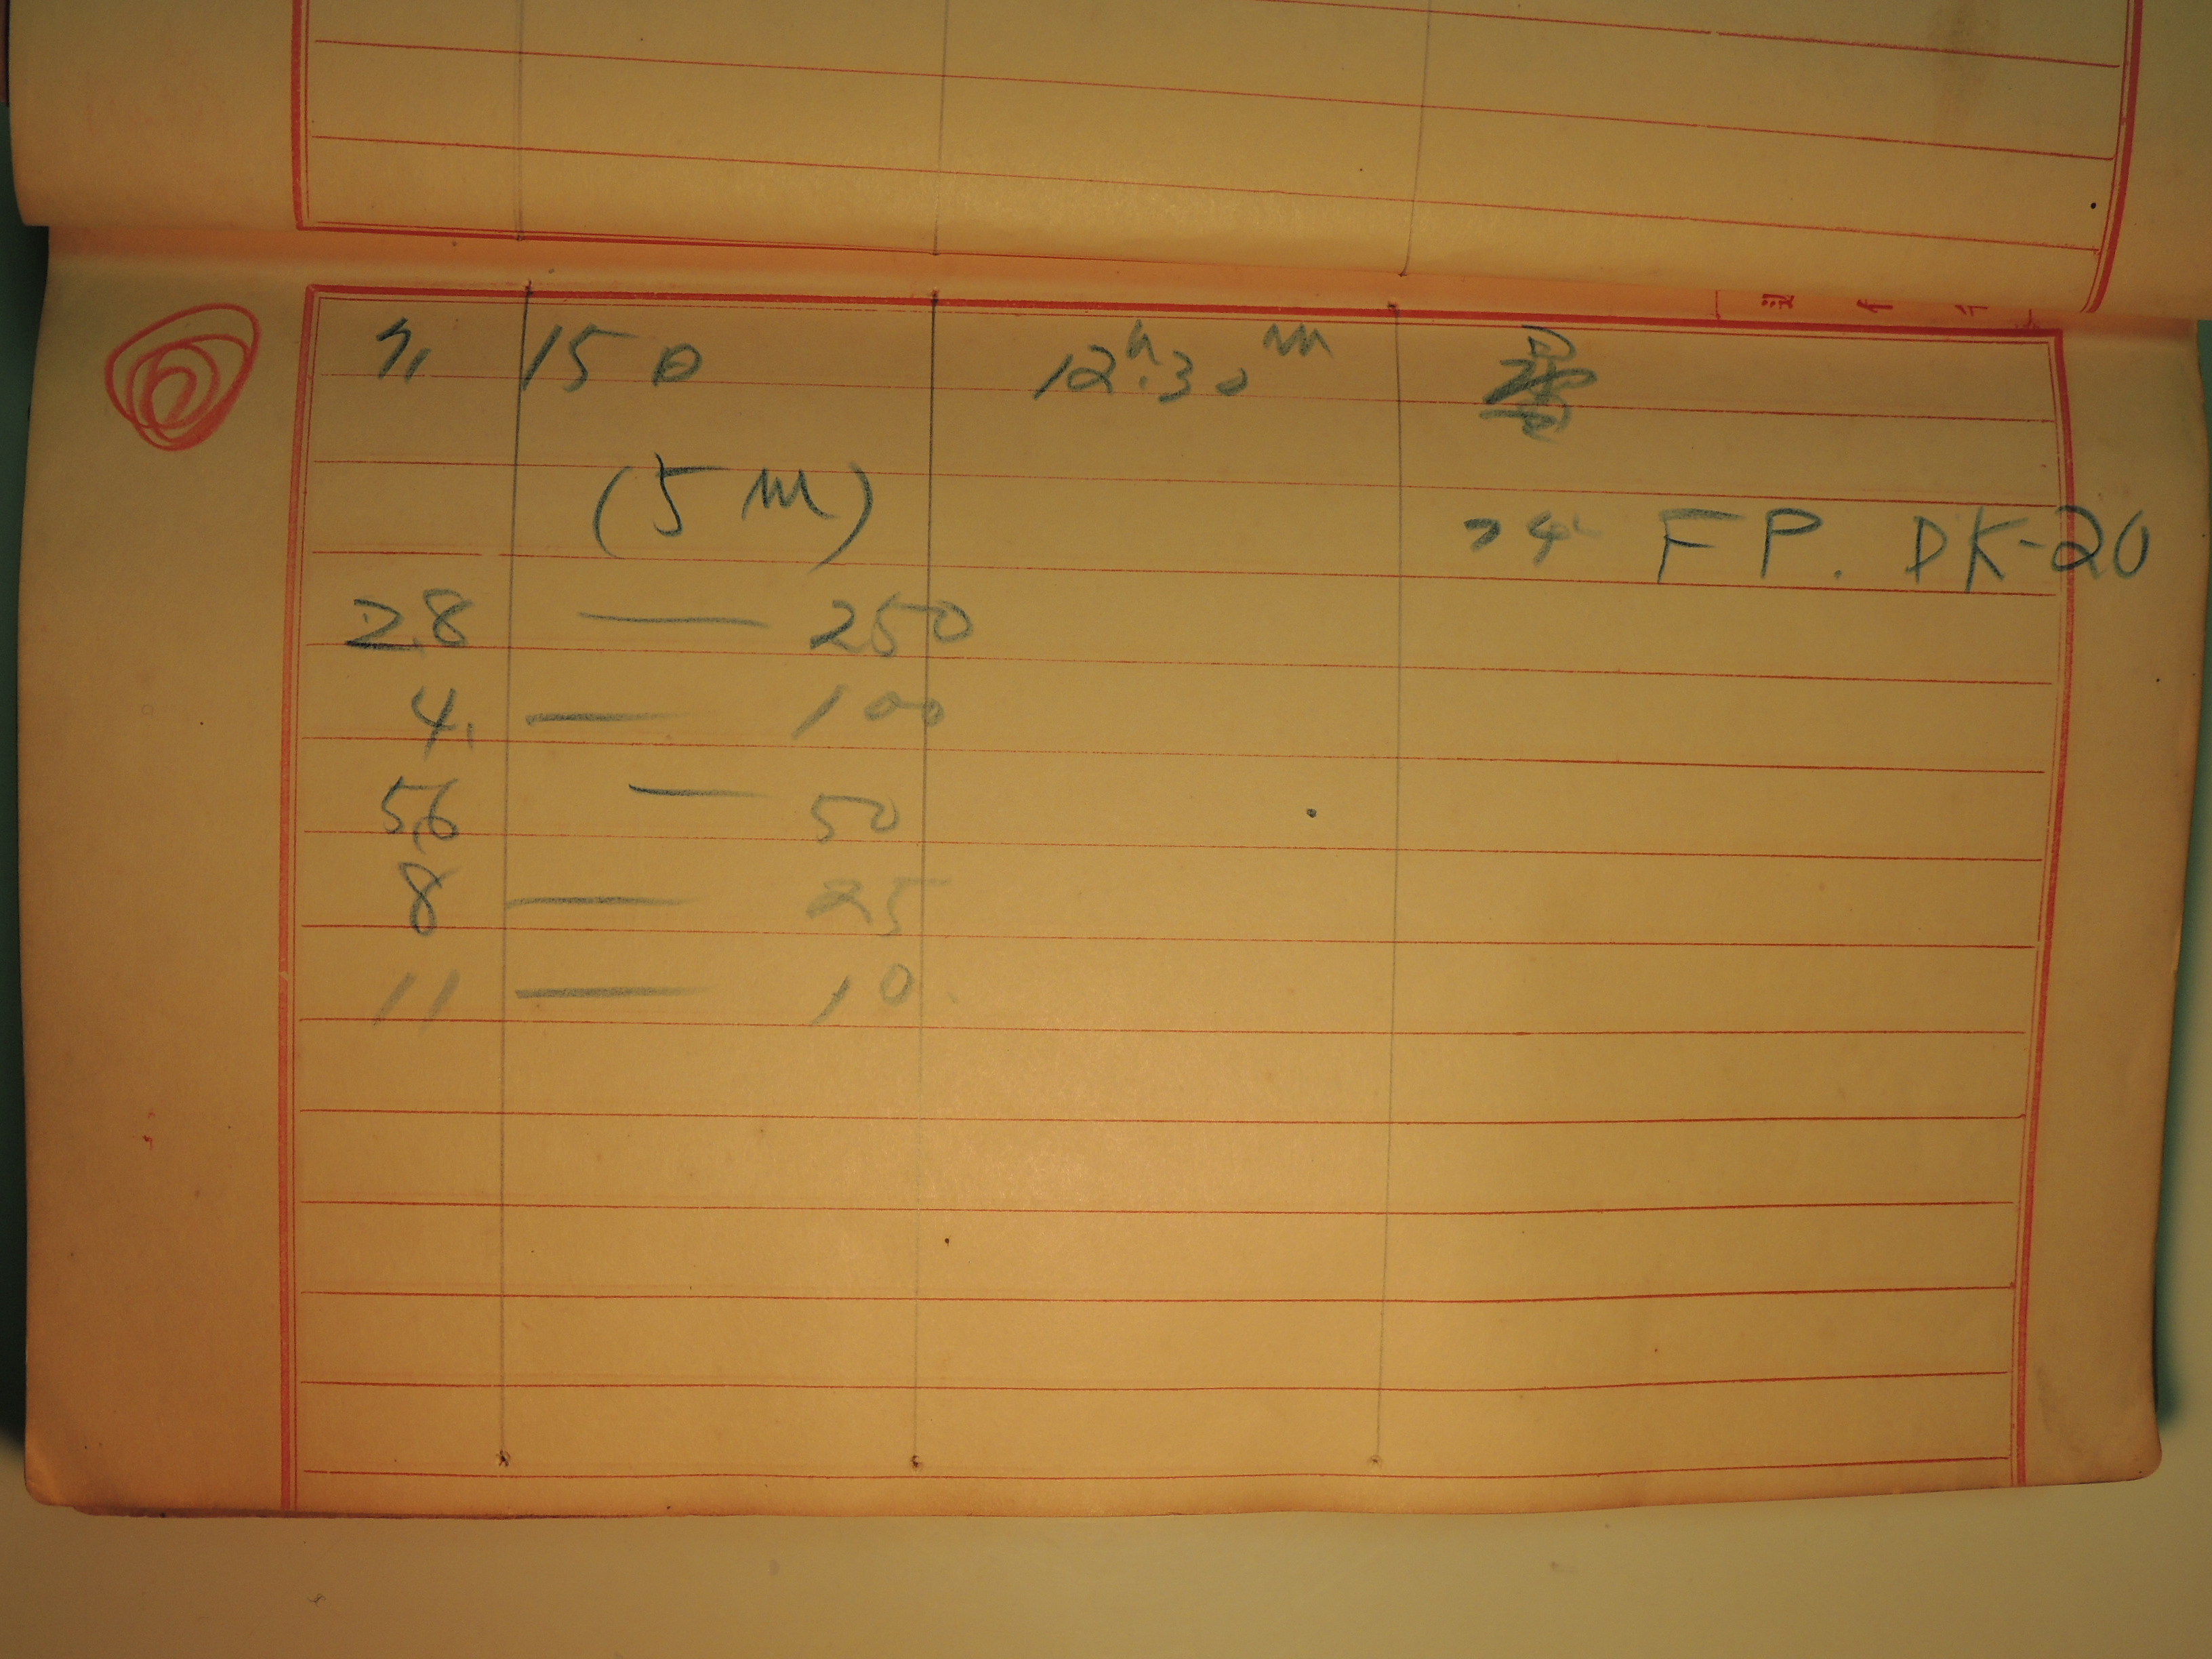 〃 15日 12h.30m 曇
(5m)
フィ FP. DK-20
2.8 — 250
4. — 100
5.6 — 50
8 — 25
11 — 10.